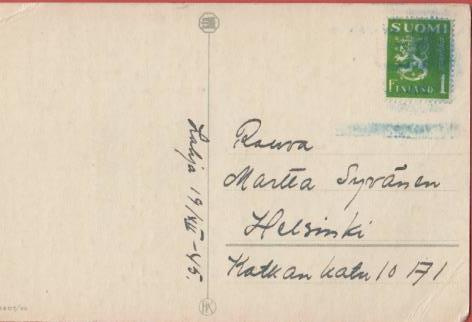 SUOMI
FINLAND 1
Rouva
Martta Syvänen
Helsinki
Kotkankatu 10 A 1
Lohja 19/XII-45.
HK